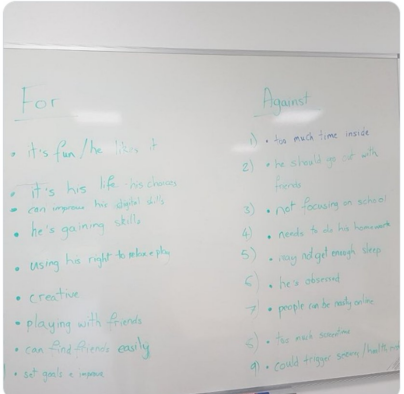 For
• it's fun / he likes it
• it's his life his choices
• can improve his digital skills
• he's gaining skills
• using his right to relax & play
• creative
• playing with friends
• can find friends easily
• set goals & improve
Against
1) • too much time inside
2) • he should go out with
friends
3) • not focusing on school
4) • needs to do his homework
5) • may not get enough sleep
6) • he's obsessed
7) • people can be nasty online
8) • too much screentime
9) • could trigger / health